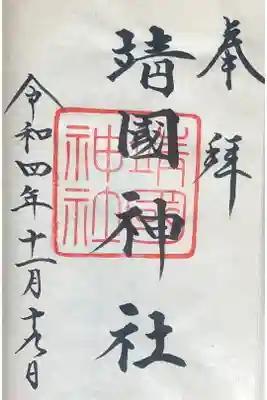 奉拝
靖國神社
靖國
神社
令和四年十一月十九日